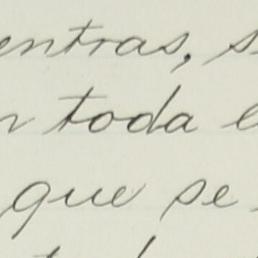 entras, s
n toda e
que se